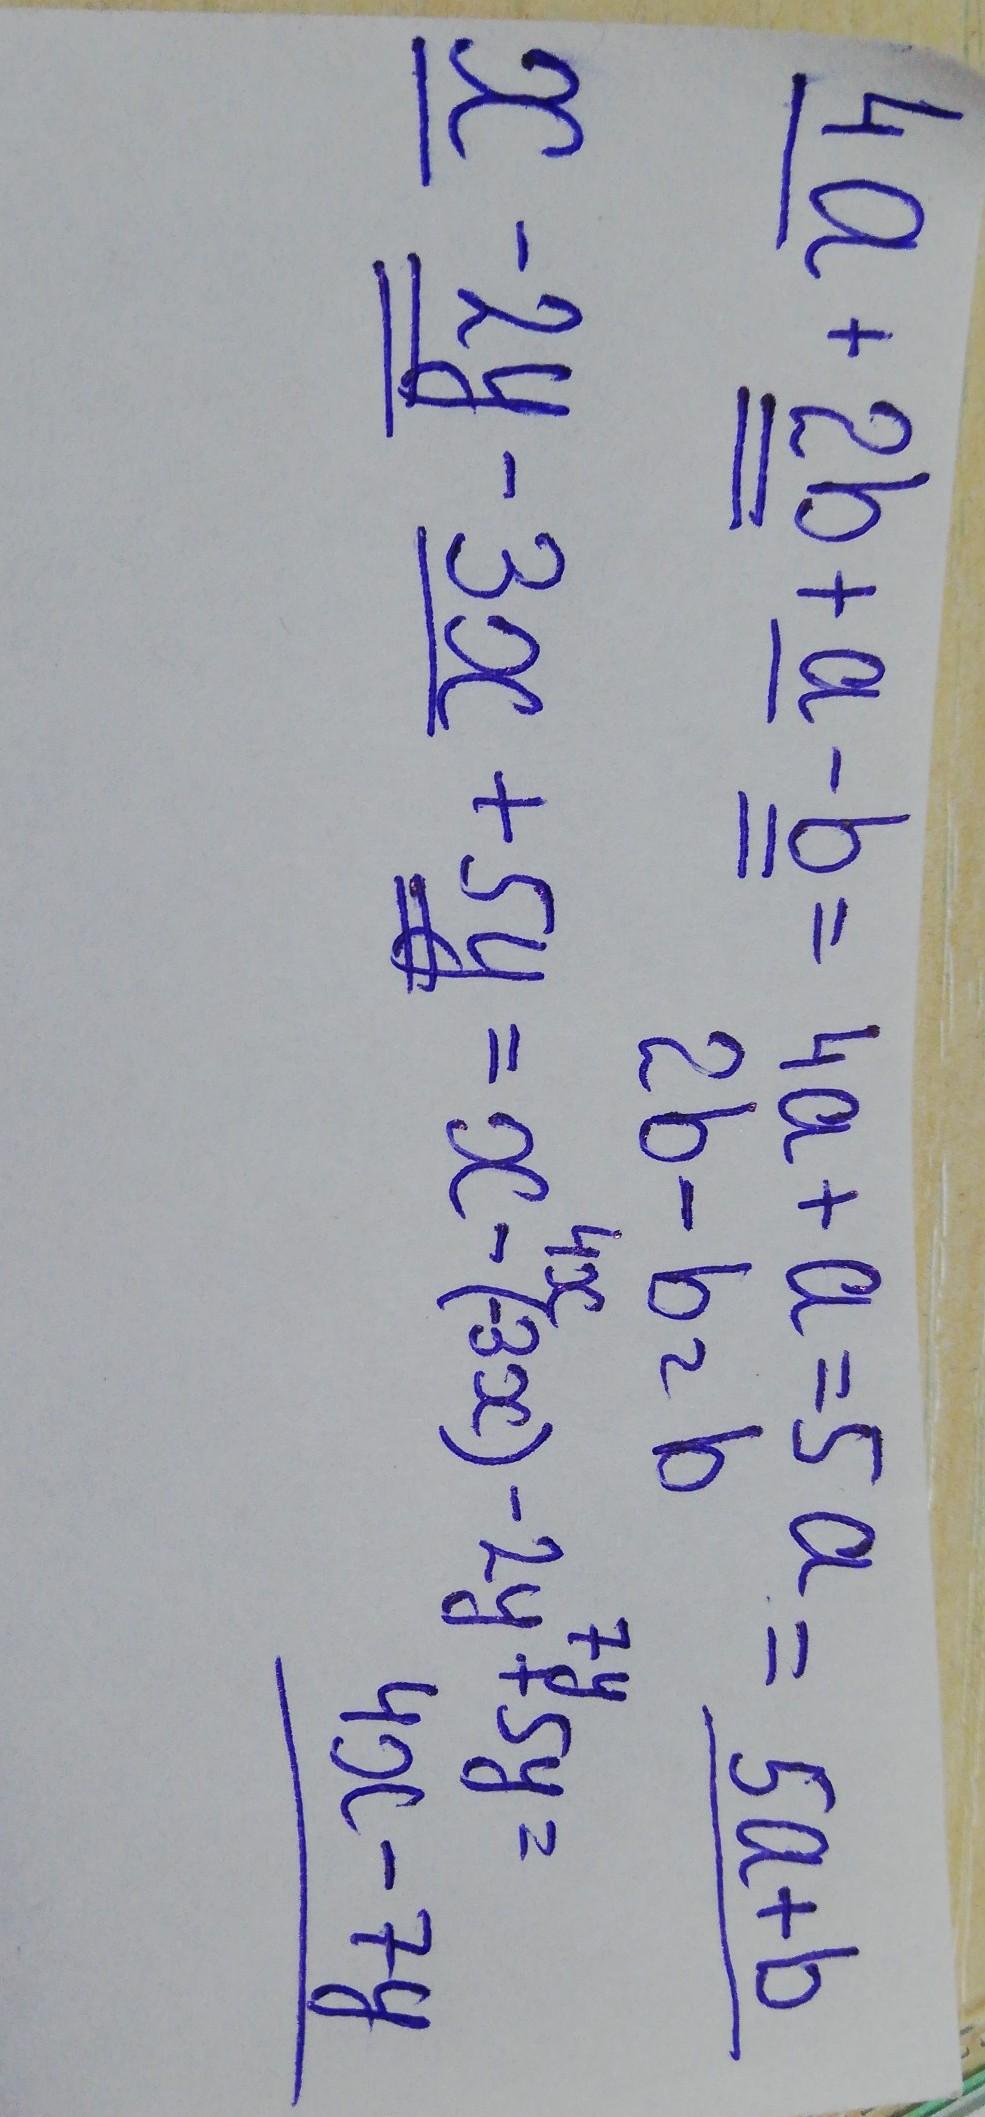 4a + 2b + a - b = 4a + a = 5a = 5a + b
2b - b = b
4x 7y
x - 2y - 3x + 5y = x - (-3x) - 2y + 5y =
4x - 7y